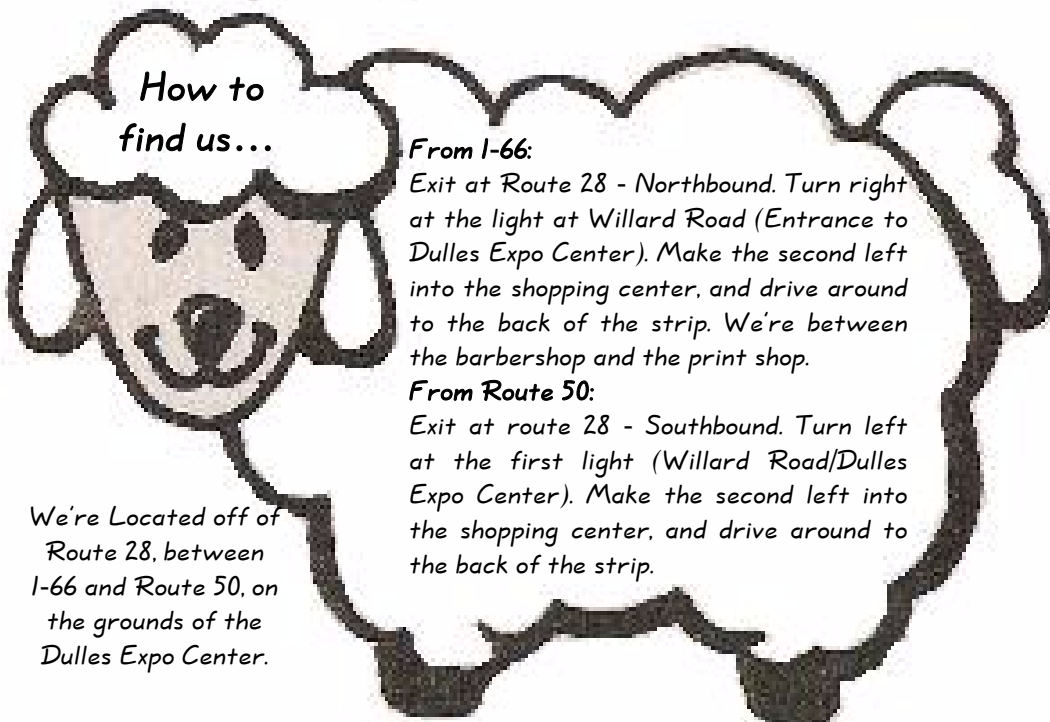 How to
find us...
From I-66:
Exit at Route 28 - Northbound. Turn right
at the light at Willard Road (Entrance to
Dulles Expo Center). Make the second left
into the shopping center, and drive around
to the back of the strip. We're between
the barbershop and the print shop.
From Route 50:
Exit at route 28 - Southbound. Turn left
at the first light (Willard Road/Dulles
Expo Center). Make the second left into
the shopping center, and drive around to
the back of the strip.
We're Located off of
Route 28, between
I-66 and Route 50, on
the grounds of the
Dulles Expo Center.